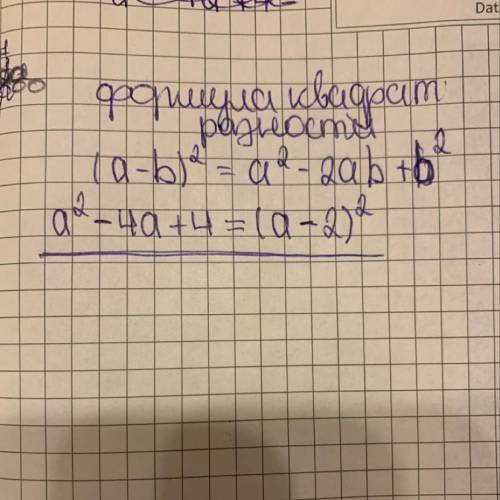 Dat
формула квадрат
разности
(a-b)² = a² - 2ab + b²
a² - 4a + 4 = (a - 2)²